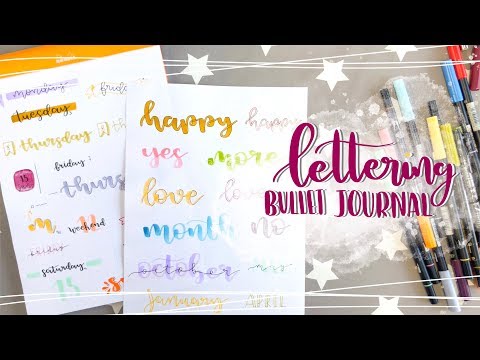 monday
friday
tuesday
thursday
friday:
15
thurs
m. weekend
friday
saturday
15
happy happy
yes more
love lo
month no
october
january APRIL
lettering
BULLET JOURNAL